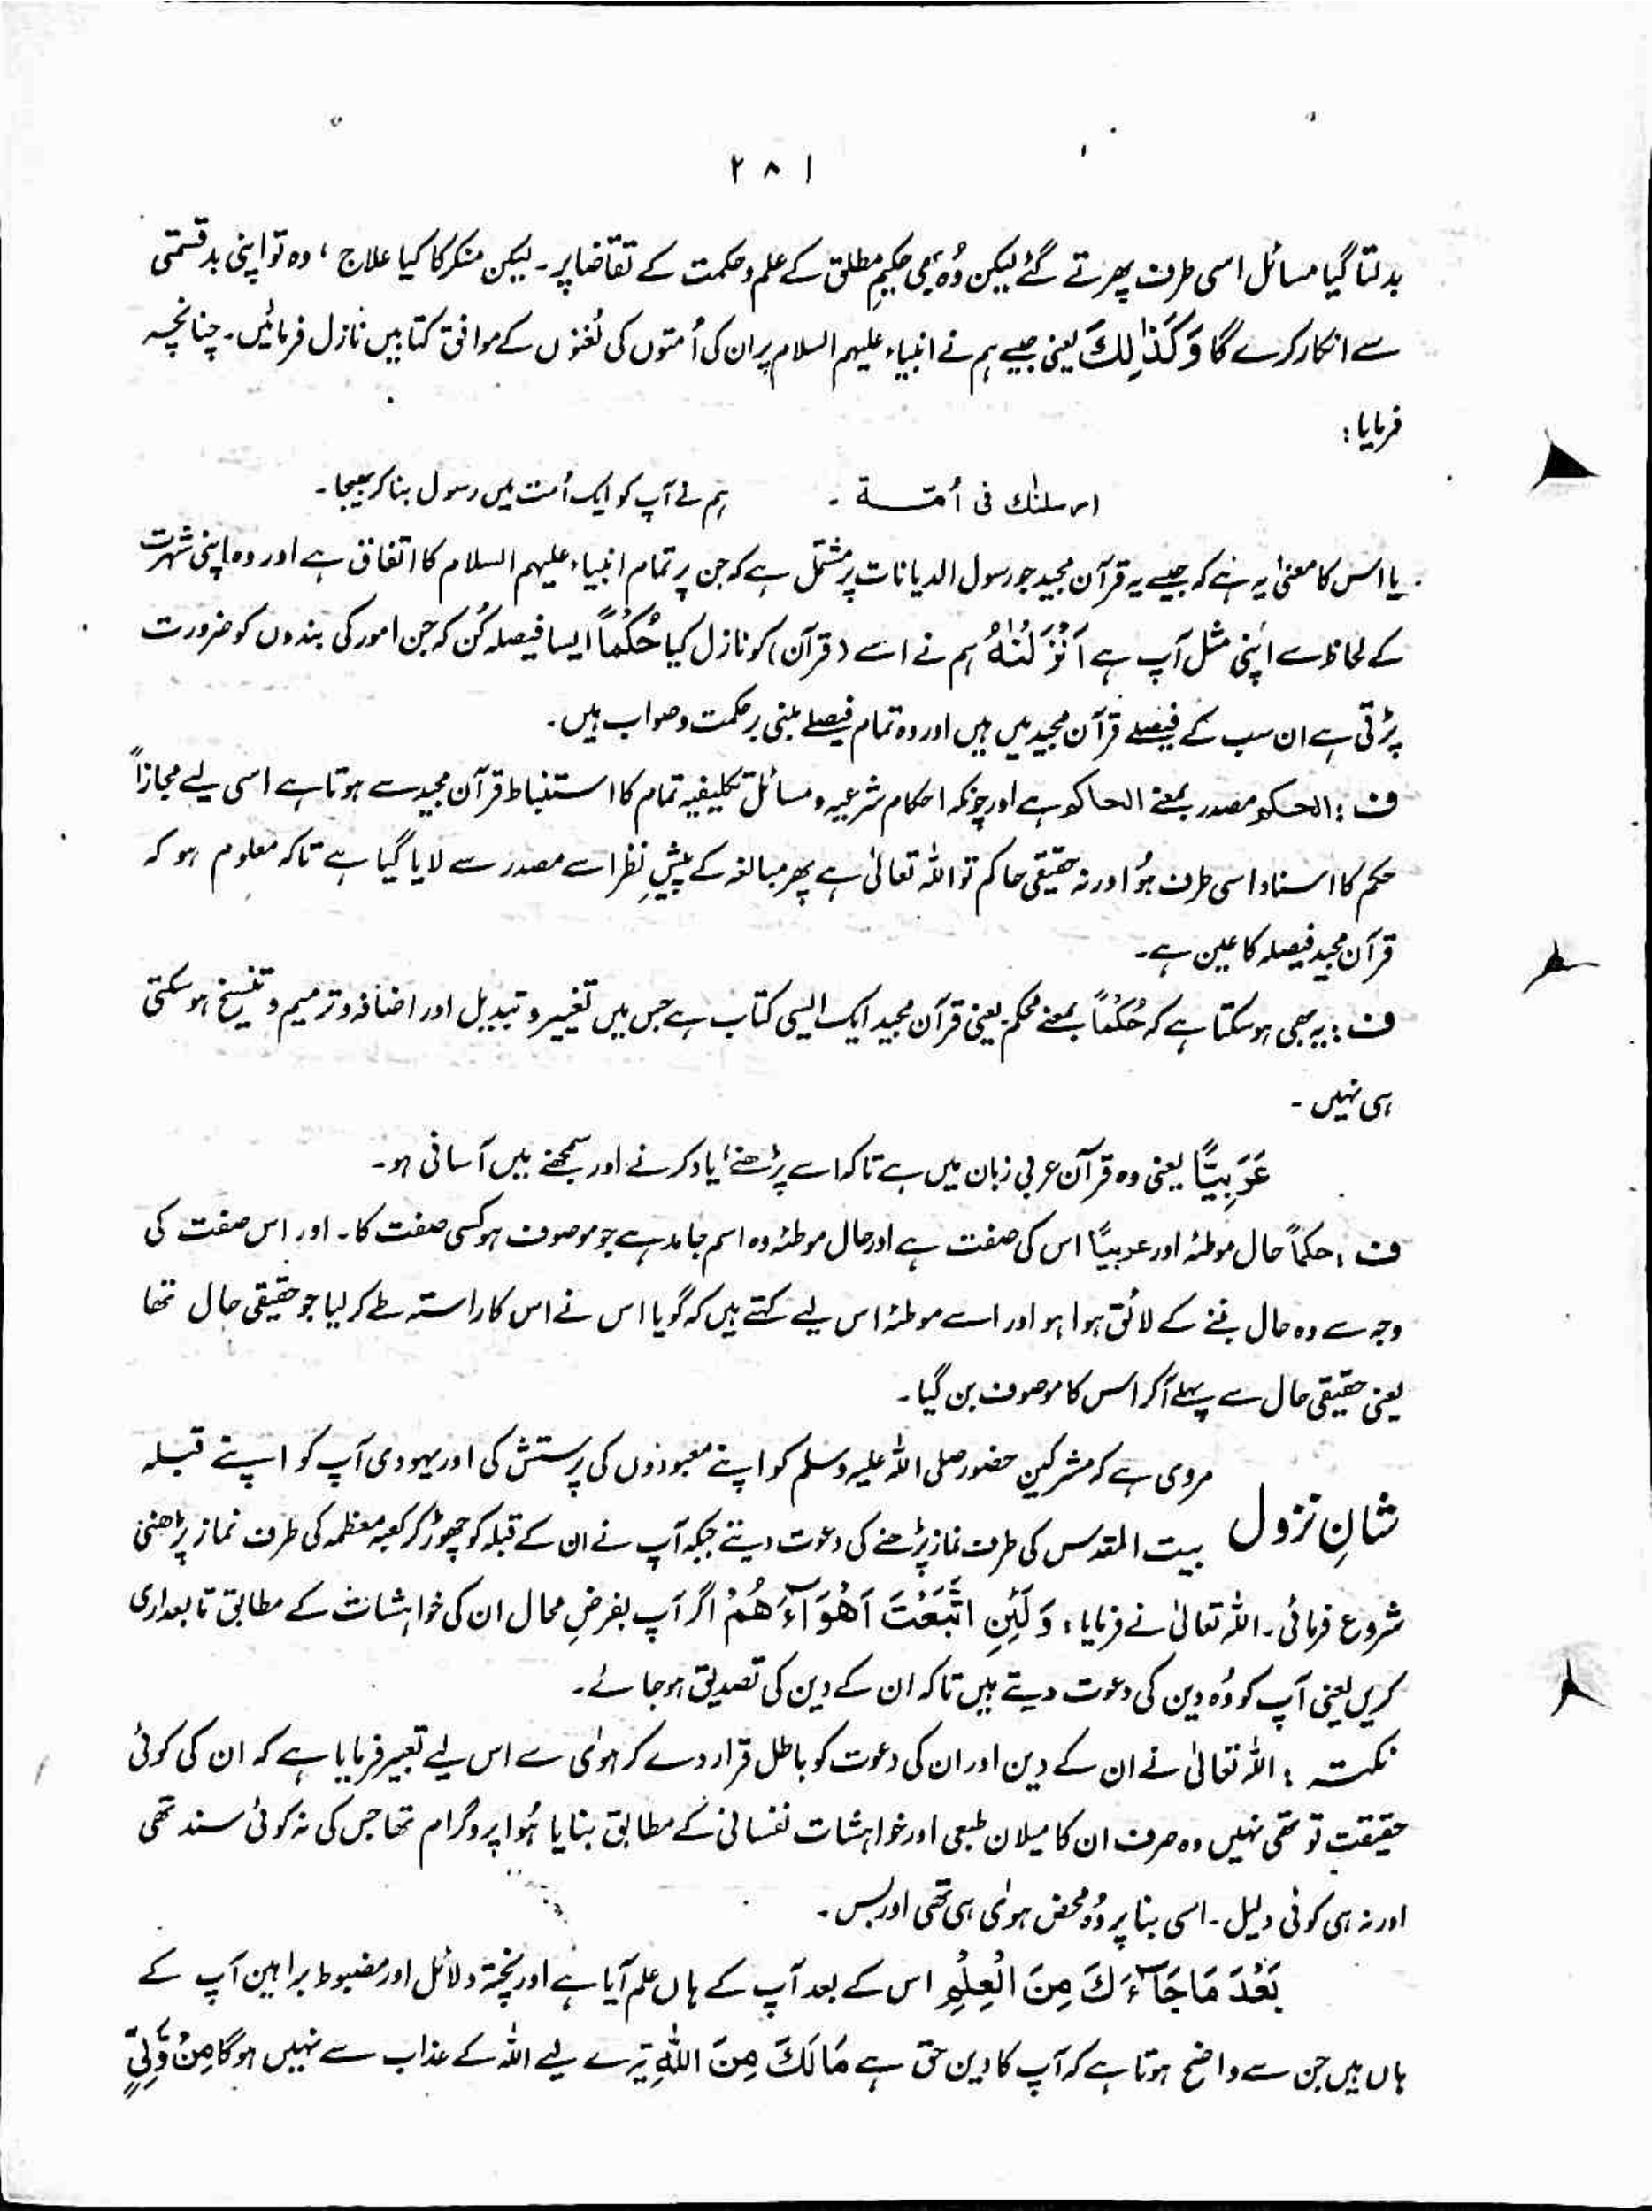 ۲۸۱
بدلتا گیا مسائل اسی طرف پھرتے گئے لیکن وُہ بھی حکیمِ مطلق کے علم و حکمت کے تقاضا پر۔ لیکن منکر کا کیا علاج، وہ تو اپنی بدقسمتی
سے انکار کرے گا وَكَذٰلِكَ یعنی جیسے ہم نے انبیاء علیہم السلام پر ان کی اُمتوں کی لُغتوں کے موافق کتابیں نازل فرمائیں۔ چنانچہ
فرمایا:
ارسلنٰك فی اُمّة۔ ہم نے آپ کو ایک اُمت میں رسول بنا کر بھیجا۔
یا اس کا معنیٰ یہ ہے کہ جیسے یہ قرآن مجید جو رسول الدیانات پر مشتمل ہے کہ جن پر تمام انبیاء علیہم السلام کا اتفاق ہے اور وہ اپنی شہرت
کے لحاظ سے اپنی مثل آپ ہے اَنْزَلْنٰهُ ہم نے اسے (قرآن) کو نازل کیا حُكْمًا ایسا فیصلہ کُن کہ جن امور کی بندوں کو ضرورت
پڑتی ہے ان سب کے فیصلے قرآن مجید میں ہیں اور وہ تمام فیصلے مبنی بر حکمت و صواب ہیں۔
ف: الحکم مصدر بمعنے الحاکم ہے اور چونکہ احکام شرعیہ و مسائل تکلیفیہ تمام کا استنباط قرآن مجید سے ہوتا ہے اسی لیے مجازاً
حکم کا اسناد اسی طرف ہُوا ورنہ حقیقی حاکم تو اللہ تعالیٰ ہے پھر مبالغہ کے پیشِ نظر اسے مصدر سے لایا گیا ہے تاکہ معلوم ہو کہ
قرآن مجید فیصلہ کا عین ہے۔
ف: یہ بھی ہو سکتا ہے کہ حُكْمًا بمعنے محکم یعنی قرآن مجید ایک ایسی کتاب ہے جس میں تغییر و تبدیل اور اضافہ و ترمیم و تنسیخ ہو سکتی
ہی نہیں۔
عَرَبِيًّا یعنی وہ قرآن عربی زبان میں ہے تاکہ اسے پڑھنے، یاد کرنے اور سمجھنے میں آسانی ہو۔
ف: حکماً حال موطئہ اور عربیًا اس کی صفت ہے اور حال موطئہ وہ اسم جامد ہے جو موصوف ہو کسی صفت کا۔ اور اس صفت کی
وجہ سے وہ حال بننے کے لائق ہوا ہو اور اسے موطئہ اس لیے کہتے ہیں کہ گویا اس نے اس کا راستہ طے کر لیا جو حقیقی حال تھا
یعنی حقیقی حال سے پہلے آ کر اس کا موصوف بن گیا۔
شانِ نزول مروی ہے کہ مشرکین حضور صلی اللہ علیہ وسلم کو اپنے معبودوں کی پرستش کی اور یہودی آپ کو اپنے قبلہ
بیت المقدس کی طرف نماز پڑھنے کی دعوت دیتے جبکہ آپ نے ان کے قبلہ کو چھوڑ کر کعبہ معظمہ کی طرف نماز پڑھنی
شروع فرمائی۔ اللہ تعالیٰ نے فرمایا: وَلَئِنِ اتَّبَعْتَ اَهْوَآءَهُمْ اگر آپ بفرضِ محال ان کی خواہشات کے مطابق تابعداری
کریں یعنی آپ کو وُہ دین کی دعوت دیتے ہیں تاکہ ان کے دین کی تصدیق ہو جائے۔
نکتہ: اللہ تعالیٰ نے ان کے دین اور ان کی دعوت کو باطل قرار دے کر ہویٰ سے اس لیے تعبیر فرمایا ہے کہ ان کی کوئی
حقیقت تو تھی نہیں وہ صرف ان کا میلان طبعی اور خواہشات نفسانی کے مطابق بنایا ہُوا پروگرام تھا جس کی نہ کوئی سند تھی
اور نہ ہی کوئی دلیل۔ اسی بنا پر وُہ محض ہویٰ ہی تھی اور بس۔
بَعْدَ مَا جَآءَكَ مِنَ الْعِلْمِ اس کے بعد آپ کے ہاں علم آیا ہے اور پختہ دلائل اور مضبوط براہین آپ کے
ہاں ہیں جن سے واضح ہوتا ہے کہ آپ کا دین حق ہے مَا لَكَ مِنَ اللّٰهِ تیرے لیے اللہ کے عذاب سے نہیں ہوگا مِنْ وَّلِيٍّ